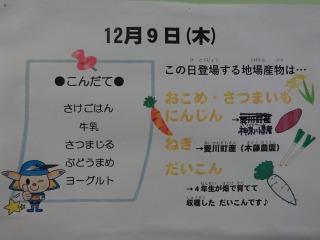 12月9日(木)
●こんだて●
さけごはん
牛乳
さつまじる
ぶどうまめ
ヨーグルト
この日登場する地場産物は…
おこめ・さつまいも
にんじん
→愛川町産
神奈川県
ねぎ→愛川町産（木藤農園）
だいこん
→4年生が畑で育てて
収穫した だいこんです♪